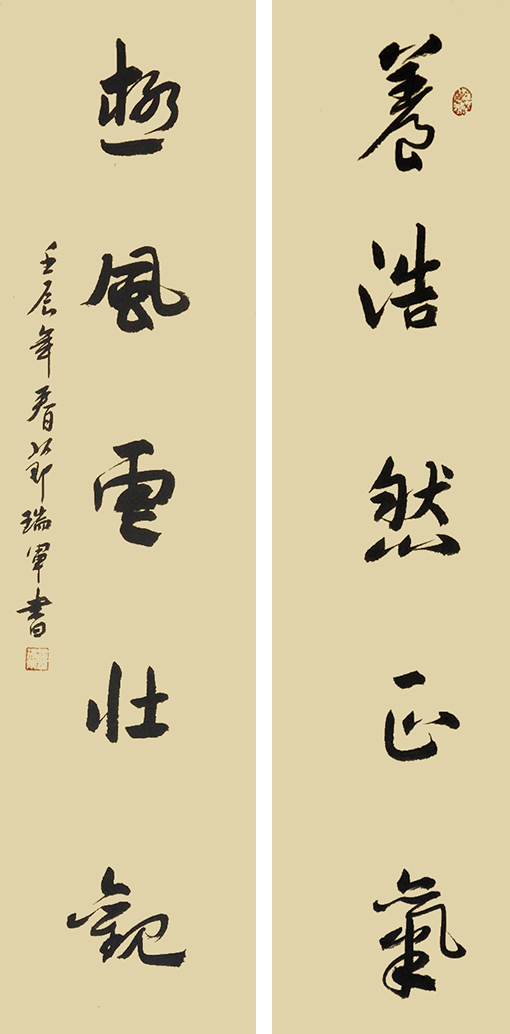 養浩然正氣
極風雲壯觀
壬辰年春節瑞軍書